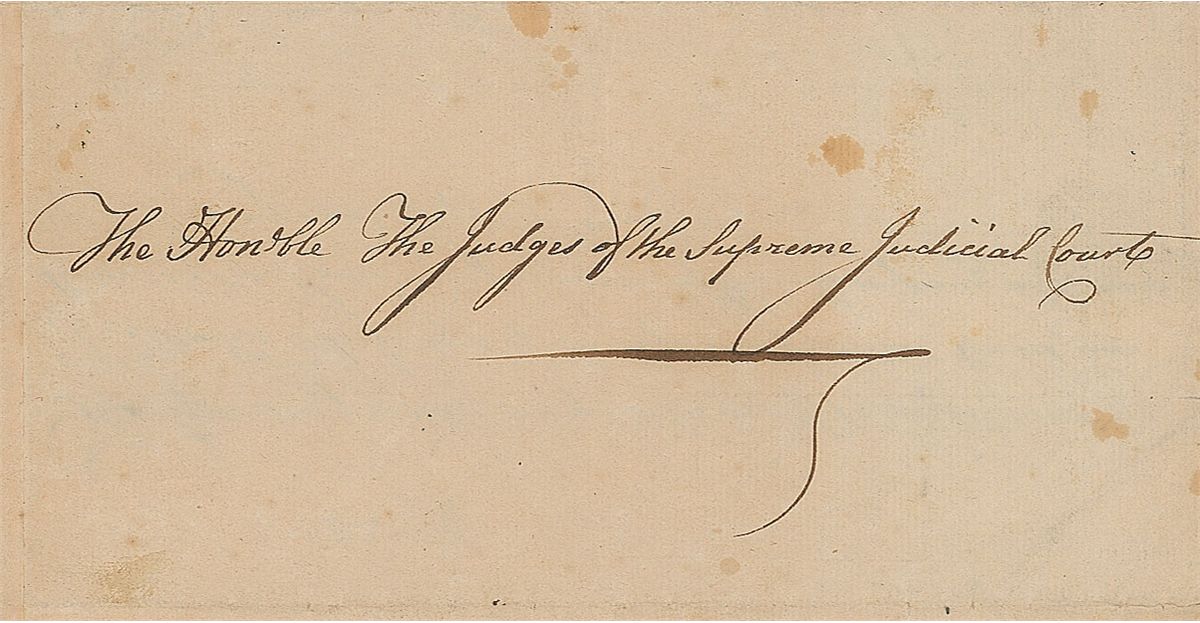 The Honble The Judges of the Supreme Judicial Court